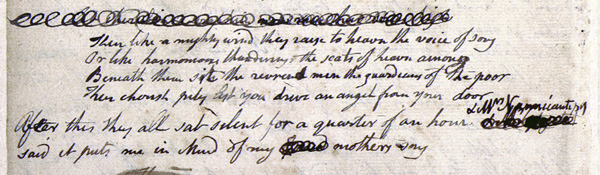 Then like a mighty wind they raise to heavn the voice of song
Or like harmonious thunderings the seats of heavn among
Beneath them sit the revrend men the guardians of the poor
Then cherish pity lest you drive an angel from your door
After this they all sat silent for a quarter of an hour. & Mrs Nannicantipot
said it puts me in Mind of my mothers song